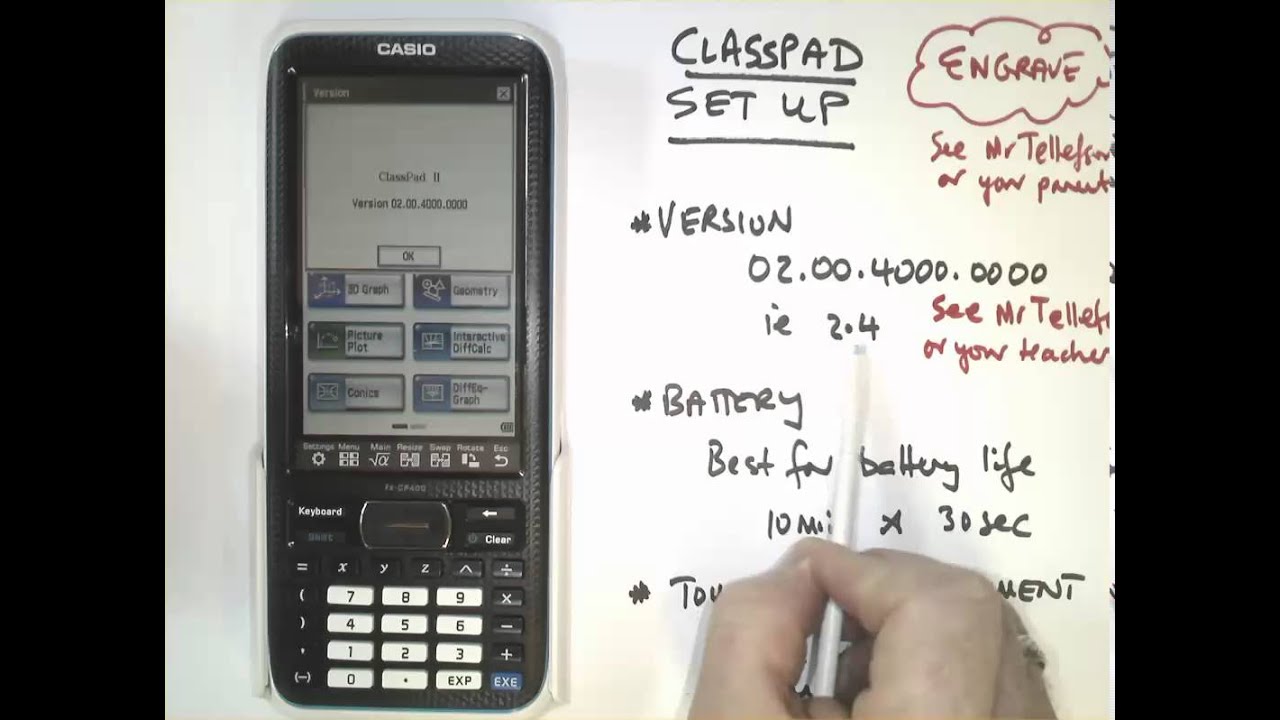 CASIO
Version
ClassPad II
Version 02.00.4000.0000
OK
3D Graph
Geometry
Picture
Plot
Interactive
DiffCalc
Conics
DiffEq-
Graph
Settings Menu Main Resize Swap Rotate Esc
√α
fx-CP400
Keyboard
Shift
Clear
= x y z ^ ÷
( 7 8 9 ×
) 4 5 6 −
, 1 2 3 +
(−) 0 . EXP EXE
CLASSPAD
SET UP
ENGRAVE
See Mr Tellefson
or your parent
* VERSION
02.00.4000.0000
ie 2.4
See Mr Tellefs
or your teacher
* BATTERY
Best for battery life
10 mi x 30 sec
* TOU MENT